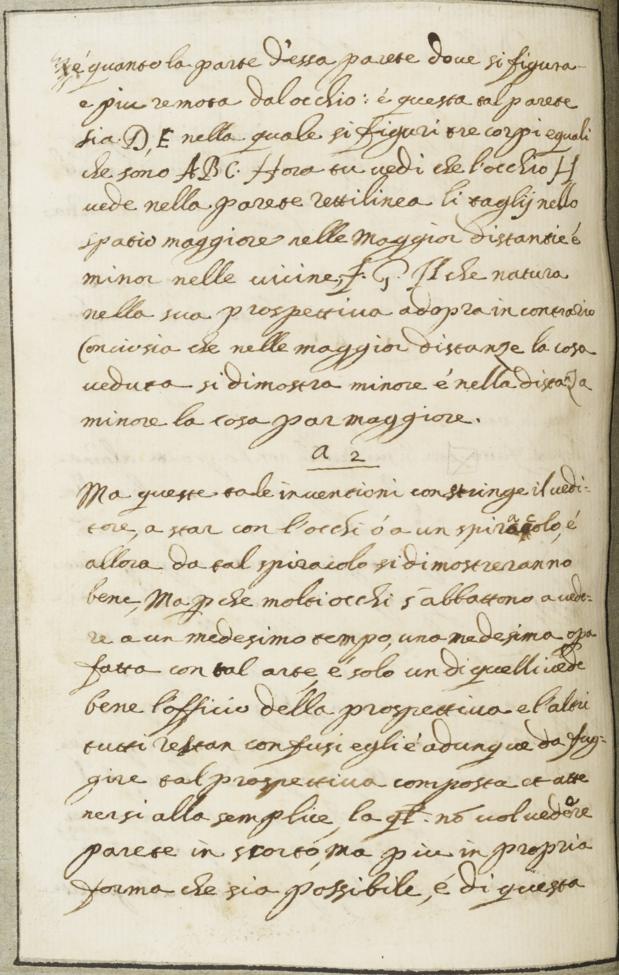 é quanto la parte d'essa parete dove si figura
e piu remota dal occhio: é questa tal parete
sia D, E nella quale si figuri tre corpi equali
che sono ABC. Hora tu vedi che l'occhio H
vede nella parete rettilinea li taglij nello
spatio maggiore nelle maggior distantie é
minor nelle vicine, f. G. Il che natura
nella sua prospettiva adopra in contrario
Conciosia che nelle maggior distanze la cosa
veduta si dimostra minore é nella distaza
minore la cosa par maggiore.
a 2
Ma queste tale inventioni constringe il vedi-
tore, a star con l'occhi ó a un spiracolo, é
allora da tal spiracolo si dimostreranno
bene, Ma p che molti occhi s'abbattono a vede-
re a un medesimo tempo, una medesima opa
fatta con tal arte, é solo un di quelli vede
bene l'officio della prospettiva e l'altri
tutti restan confusi egli é adunque da fug-
gire tal prospettiva composta et atte
nersi alla semplice, la ql. nō vol vedere
parete in scorto, ma piu in propria
forma che sia possibile, é di questa